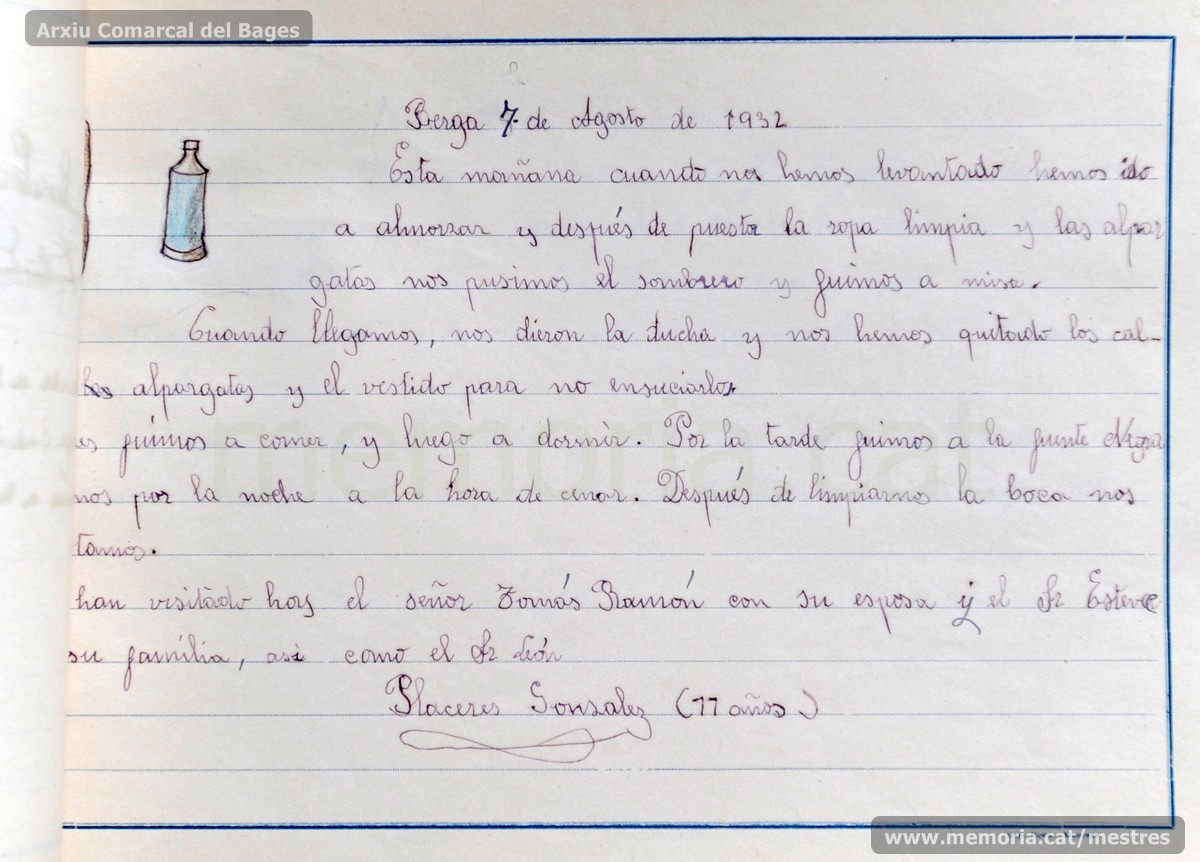 Arxiu Comarcal del Bages
Berga 7 de Agosto de 1932
Esta mañana cuando nos hemos levantado hemos ido
a almorzar y después de puesta la ropa limpia y las alpar
gatas nos pusimos el sombrero y fuimos a misa.
Cuando llegamos, nos dieron la ducha y nos hemos quitado los cal-
alpargatas y el vestido para no ensuciarlos
es fuimos a comer, y luego a dormir. Por la tarde fuimos a la fuente Negra
nos por la noche a la hora de cenar. Después de limpiarnos la boca nos
tamos.
han visitado hoy el señor Tomás Ramón con su esposa y el Sr Esteve
su família, asi como el Sr León
Placeres Gonzalez (11 años)
memoria.cat
www.memoria.cat/mestres